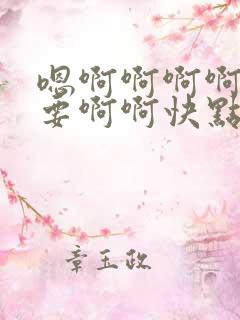 嗯啊啊啊啊
要啊啊快點
章玉政